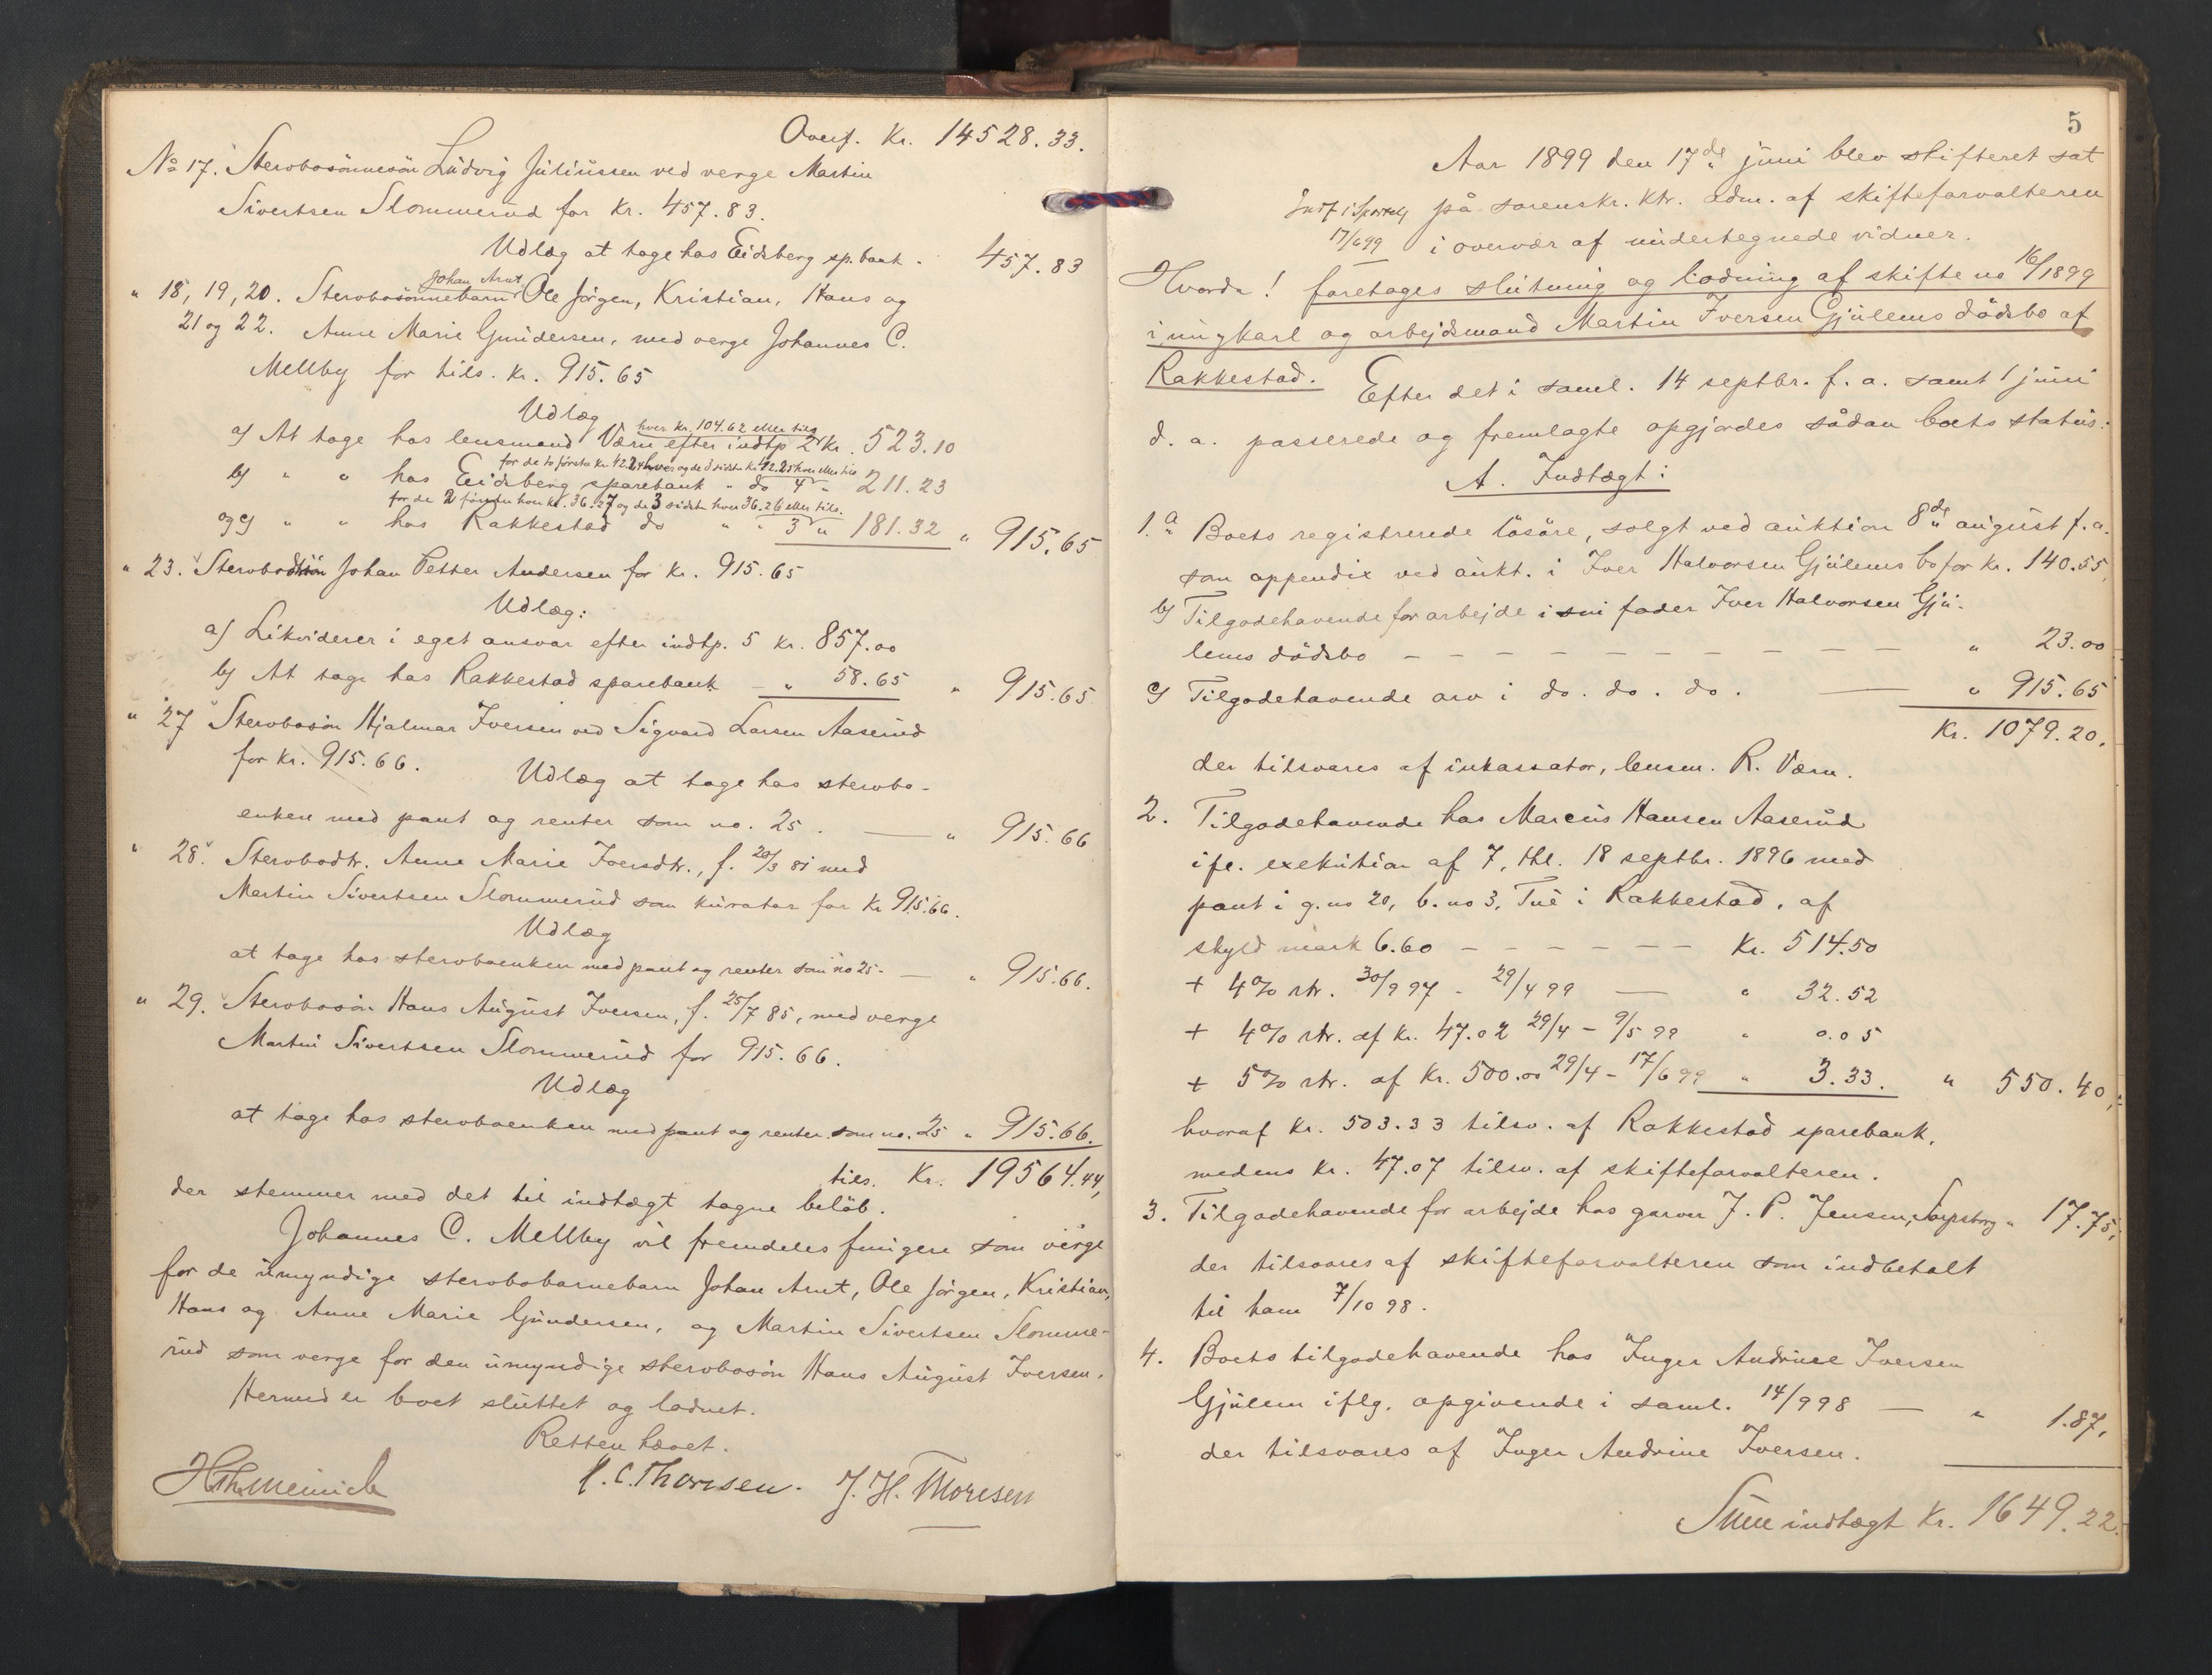 Overf. Kr. 14528.33.
No 17. Stervbosönnesön Ludvig Juliussen ved verge Martin
Sivertsen Slommerud for Kr. 457.83.
Udlæg at tage hos Eidsberg sp.bank. 457.83
Johan Arnt,
" 18, 19, 20. Stervbosönnebarn Ole Jörgen, Kristian, Hans og
21 og 22. Anne Marie Gundersen, med verge Johannes C.
Mellby for tils. Kr. 915.65
Udlæg
hver kr. 104.62 eller tils
a) At tage hos lensmand Værn efter indtp 2 kr. 523.10
for de to første kr. 42.24 hver og de 3 sidste kr. 42.25 hver eller tils
b) " " hos Eidsberg sparebank " do 4 " 211.23
for de 2 første hver kr. 36.27 og de 3 sidste hver 36.26 eller tils.
og c) " " hos Rakkestad do " " 3 " 181.32 " 915.65
" 23. Stervbosön Johan Petter Andersen for kr. 915.65
Udlæg:
a) Likviderer i eget ansvar efter indtp. 5 kr. 857.00
b) At tage hos Rakkestad sparebank — " 58.65 " 915.65
" 27 Stervbosön Hjalmar Iversen ved Sigvard Larsen Aaserud
for kr. 915.66. Udlæg at tage hos stervbo-
enken med pant og renter som no. 25. — " 915.66
" 28. Stervbodtr. Anne Marie Iversdtr., f. 20/3 81 med
Martin Sivertsen Slommerud som kurator for Kr 915.66.
Udlæg
at tage hos stervboenken med pant og renter som no 25. — " 915.66.
" 29. Stervbosön Hans August Iversen, f. 25/7 85, med verge
Martin Sivertsen Slommerud for 915.66.
Udlæg
at tage hos stervboenken med pant og renter som no. 25 " 915.66.
tils. Kr. 19564.44,
der stemmer med det til indtægt tagne belöb.
Johannes C. Mellby vil fremdeles fungere som verge
for de umyndige stervbobarnebarn Johan Arnt, Ole Jörgen, Kristian,
Hans og Anne Marie Gundersen, og Martin Sivertsen Slomme-
rud som verge for den umyndige stervbosön Hans August Iversen.
Hermed er boet sluttet og lodnet.
Retten hævet.
H. C. Thoresen. J. H. Thoresen
5
Aar 1899 den 17de juni blev skifteret sat
på sorenskr. ktr. adm. af skifteforvalteren
Indf i Sportelj
17/6 99 i overvær af undertegnede vidner.
Hvorda! foretages slutning og lodning af skifte no 16/1899
i ungkarl og arbejdsmand Martin Iversen Gjulems dödsbo af
Rakkestad. Efter det i saml. 14 septbr. f. a. samt 1 juni
d. a. passerede og fremlagte opgjordes sådan boets status:
A. Indtægt:
1. a Boets registrerede lösöre, solgt ved auktion 8de august f. a.
som appendix ved aukt. i Iver Halvorsen Gjulems bo for kr. 140.55,
b) Tilgodehavende for arbejde i sin fader Iver Halvorsen Gju-
lems dödsbo — — — — — — — — — " 23.00
c) Tilgodehavende arv i do. do. do. — " 915.65
Kr. 1079.20.
der tilsvares af inkassator, lensm. R. Værn.
2. Tilgodehavende hos Marcus Hansen Aaserud
ifl. exekution af 7, thl. 18 septbr. 1896 med
pant i g.no 20, b.no 3, Tue i Rakkestad, af
skyld mark 6.60 — — — — — — Kr. 514.50
+ 4% rtr. 30/9 97 - 29/4 99 — " 32.52
+ 4% rtr. af Kr. 47.02 29/4 - 9/5 99 " 0.05
+ 5% rtr. af Kr. 500.00 29/4 - 17/6 99 " 3.33. " 550.40,
hvoraf kr. 503.33 tilsv. af Rakkestad sparebank,
medens kr. 47.07 tilsv. af skifteforvalteren.
3. Tilgodehavende for arbejde hos garver J. P. Jensen, Sarpsborg " 17.75,
der tilsvares af skifteforvalteren som indbetalt
til ham 7/10 98.
4. Boets tilgodehavende hos Inger Andrine Iversen
Gjulem iflg. opgivende i saml. 14/9 98 — " 1.87,
der tilsvares af Inger Andrine Iversen.
Sum indtægt Kr. 1649.22.